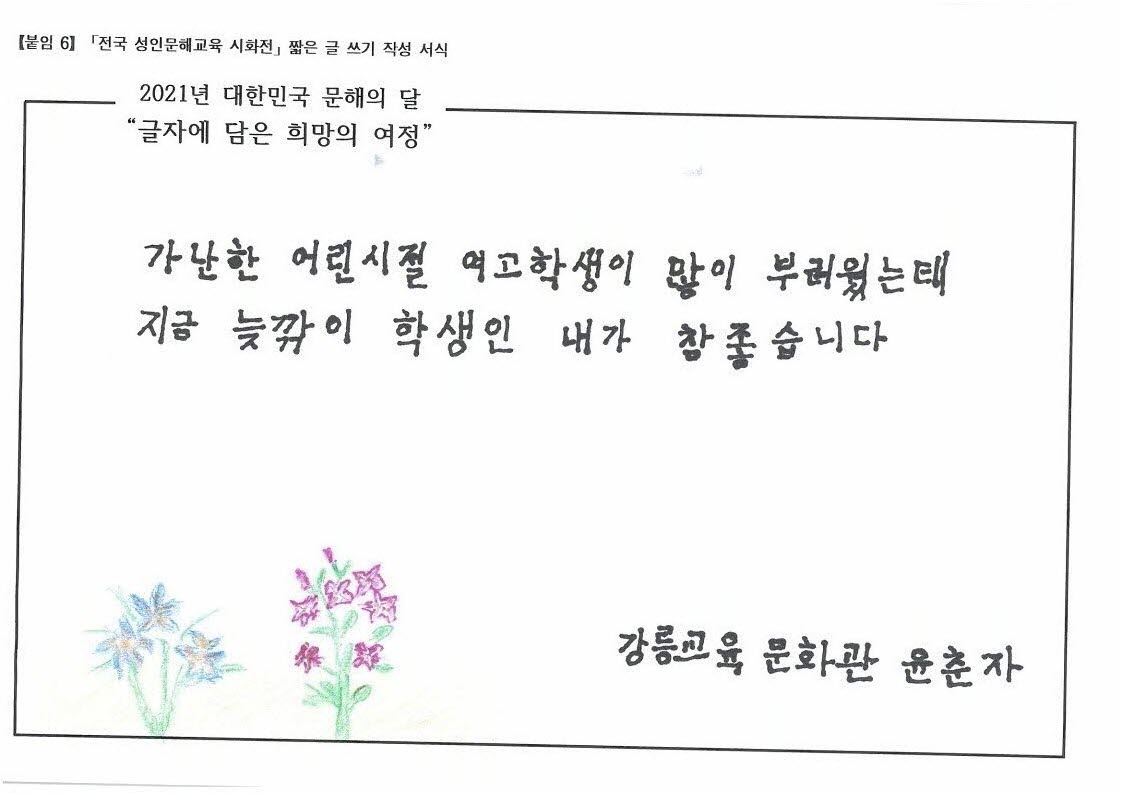 【붙임 6】 「전국 성인문해교육 시화전」 짧은 글 쓰기 작성 서식
2021년 대한민국 문해의 달
“글자에 담은 희망의 여정”
가난한 어린시절 여고학생이 많이 부러웠는데
지금 늦깎이 학생인 내가 참좋습니다
강릉교육 문화관 윤춘자